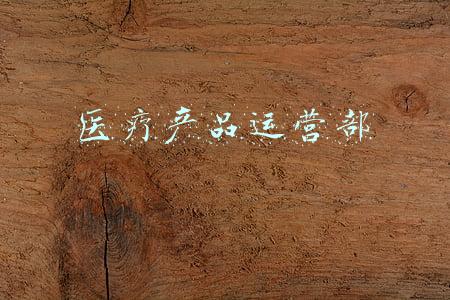 医疗产品运营部